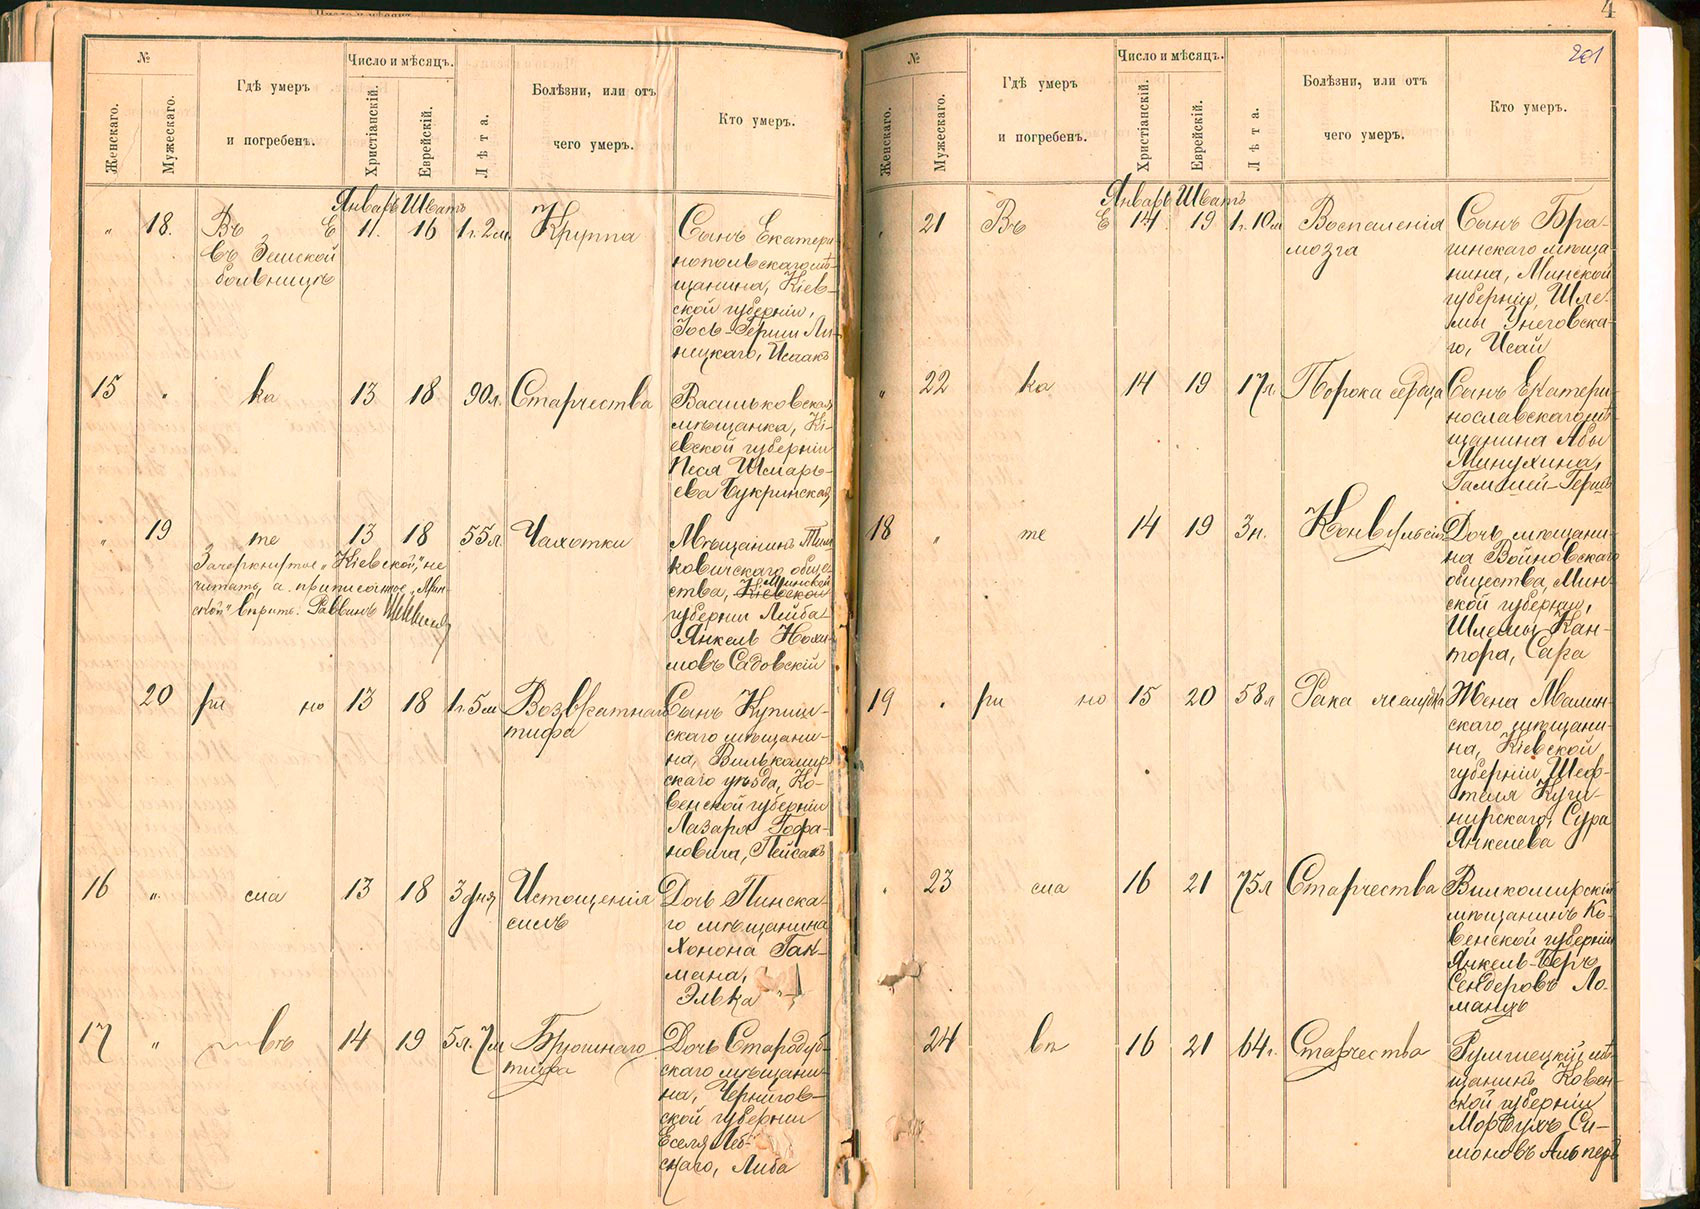 4
201
№
Женскаго.
Мужескаго.
Гдѣ умеръ
и погребенъ.
Число и мѣсяцъ.
Христіанскій.
Еврейскій.
Лѣта.
Болѣзни, или отъ
чего умеръ.
Кто умеръ.
Январь Шватъ
„ 18. Въ Е 11. 16 1г. 2м. Круппа
въ Земской
больницѣ
Сынъ Екатери
нопольскаго мѣ-
щанина, Кіев-
ской губерніи,
Іось-Герши Ли-
нецкаго, Исаакъ
15 „ ка 13 18 90л. Старчества
Васильковская
мѣщанка, Кі-
евской губерніи
Песя Шмарь-
ева Букринская
„ 19 те 13 18 55л. Чахотки
Зачеркнутое „Кіевской," не
читать, а приписанное „Мин-
ской" вѣрить. Раввинъ
Мѣщанинъ
ковичскаго обще-
ства, Кіевской Минской
губерніи Лейба-
Янкель Нохи-
мовъ Садовскій
20 ри но 13 18 1г. 5м. Возвратнаго
тифа
Сынъ Купиш-
скаго мѣщани-
на, Вилькомир-
скаго уѣзда, Ко-
венской губерніи
Лазаря Гофа-
новича, Пейсахъ
16 „ сла 13 18 3 дня Истощенія
силъ
Дочь Пинска-
го мѣщанина
Хонона Гак-
мана,
Элька
17 „ въ 14 19 5л. 7м. Брюшнаго
тифа
Дочь Стародуб-
скаго мѣщани-
на, Чернигов-
ской губерніи
Еселя Леб-
скаго, Либа
№
Женскаго.
Мужескаго.
Гдѣ умеръ
и погребенъ.
Число и мѣсяцъ.
Христіанскій.
Еврейскій.
Лѣта.
Болѣзни, или отъ
чего умеръ.
Кто умеръ.
Январь Шватъ
„ 21 Въ Е 14 19 1г. 10м Воспаленія
мозга
Сынъ Бра-
гинскаго мѣща
нина, Минской
губерніи, Шле-
мы Унеговска-
го, Исай
„ 22 ка 14 19 17л. Порока сердца
Сынъ Екатери-
нославскаго мѣ-
щанина Абы
Минухина,
Гамшей-Гершъ
18 „ те 14 19 3н. Конвульсій
Дочь мѣщани-
на Войновскаго
общества, Мин-
ской губерніи,
Шлемы Кан-
тора, Сара
19 „ ри но 15 20 58л Рака желудка
Жена Малин-
скаго мѣщани-
на, Кіевской
губерніи, Шеф-
теля Куш-
нирскаго, Сура
Янкелева
„ 23 сла 16 21 75л Старчества
Вилкомирскій
мѣщанинъ Ко-
венской губерніи
Янкель-Беръ
Сендеровъ Ло-
манцъ
24 въ 16 21 64г. Старчества
мѣ-
щанинъ Ковен-
ской губерніи
Мордухъ Си-
моновъ Альперъ